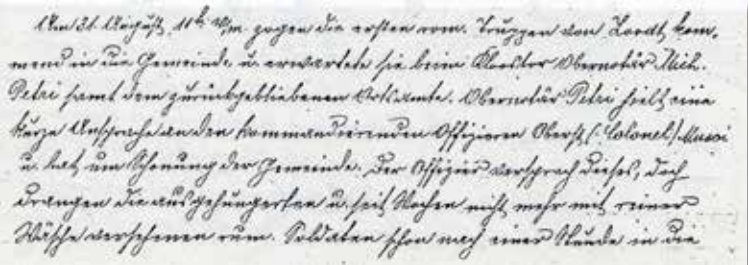 Am 31. August, 11h V/m. zogen die ersten rom. Truppen von Zoodt, kom-
mend in die Gemeinde u. erwartete sie beim Kloster Obernotär Mich.
Petri samt dem zurückgebliebenen Ortsamte. Obernotär Petri hielt eine
kurze Ansprache an den kommandierenden Offizieren Oberst (Colonel)
u. bat um Schonung der Gemeinde. Der Offizier versprach dieses, doch
drangen die ausgehungerten u. seit Wochen nicht mehr mit reiner
Wäsche versehenen rum. Soldaten schon nach einer Stunde in die